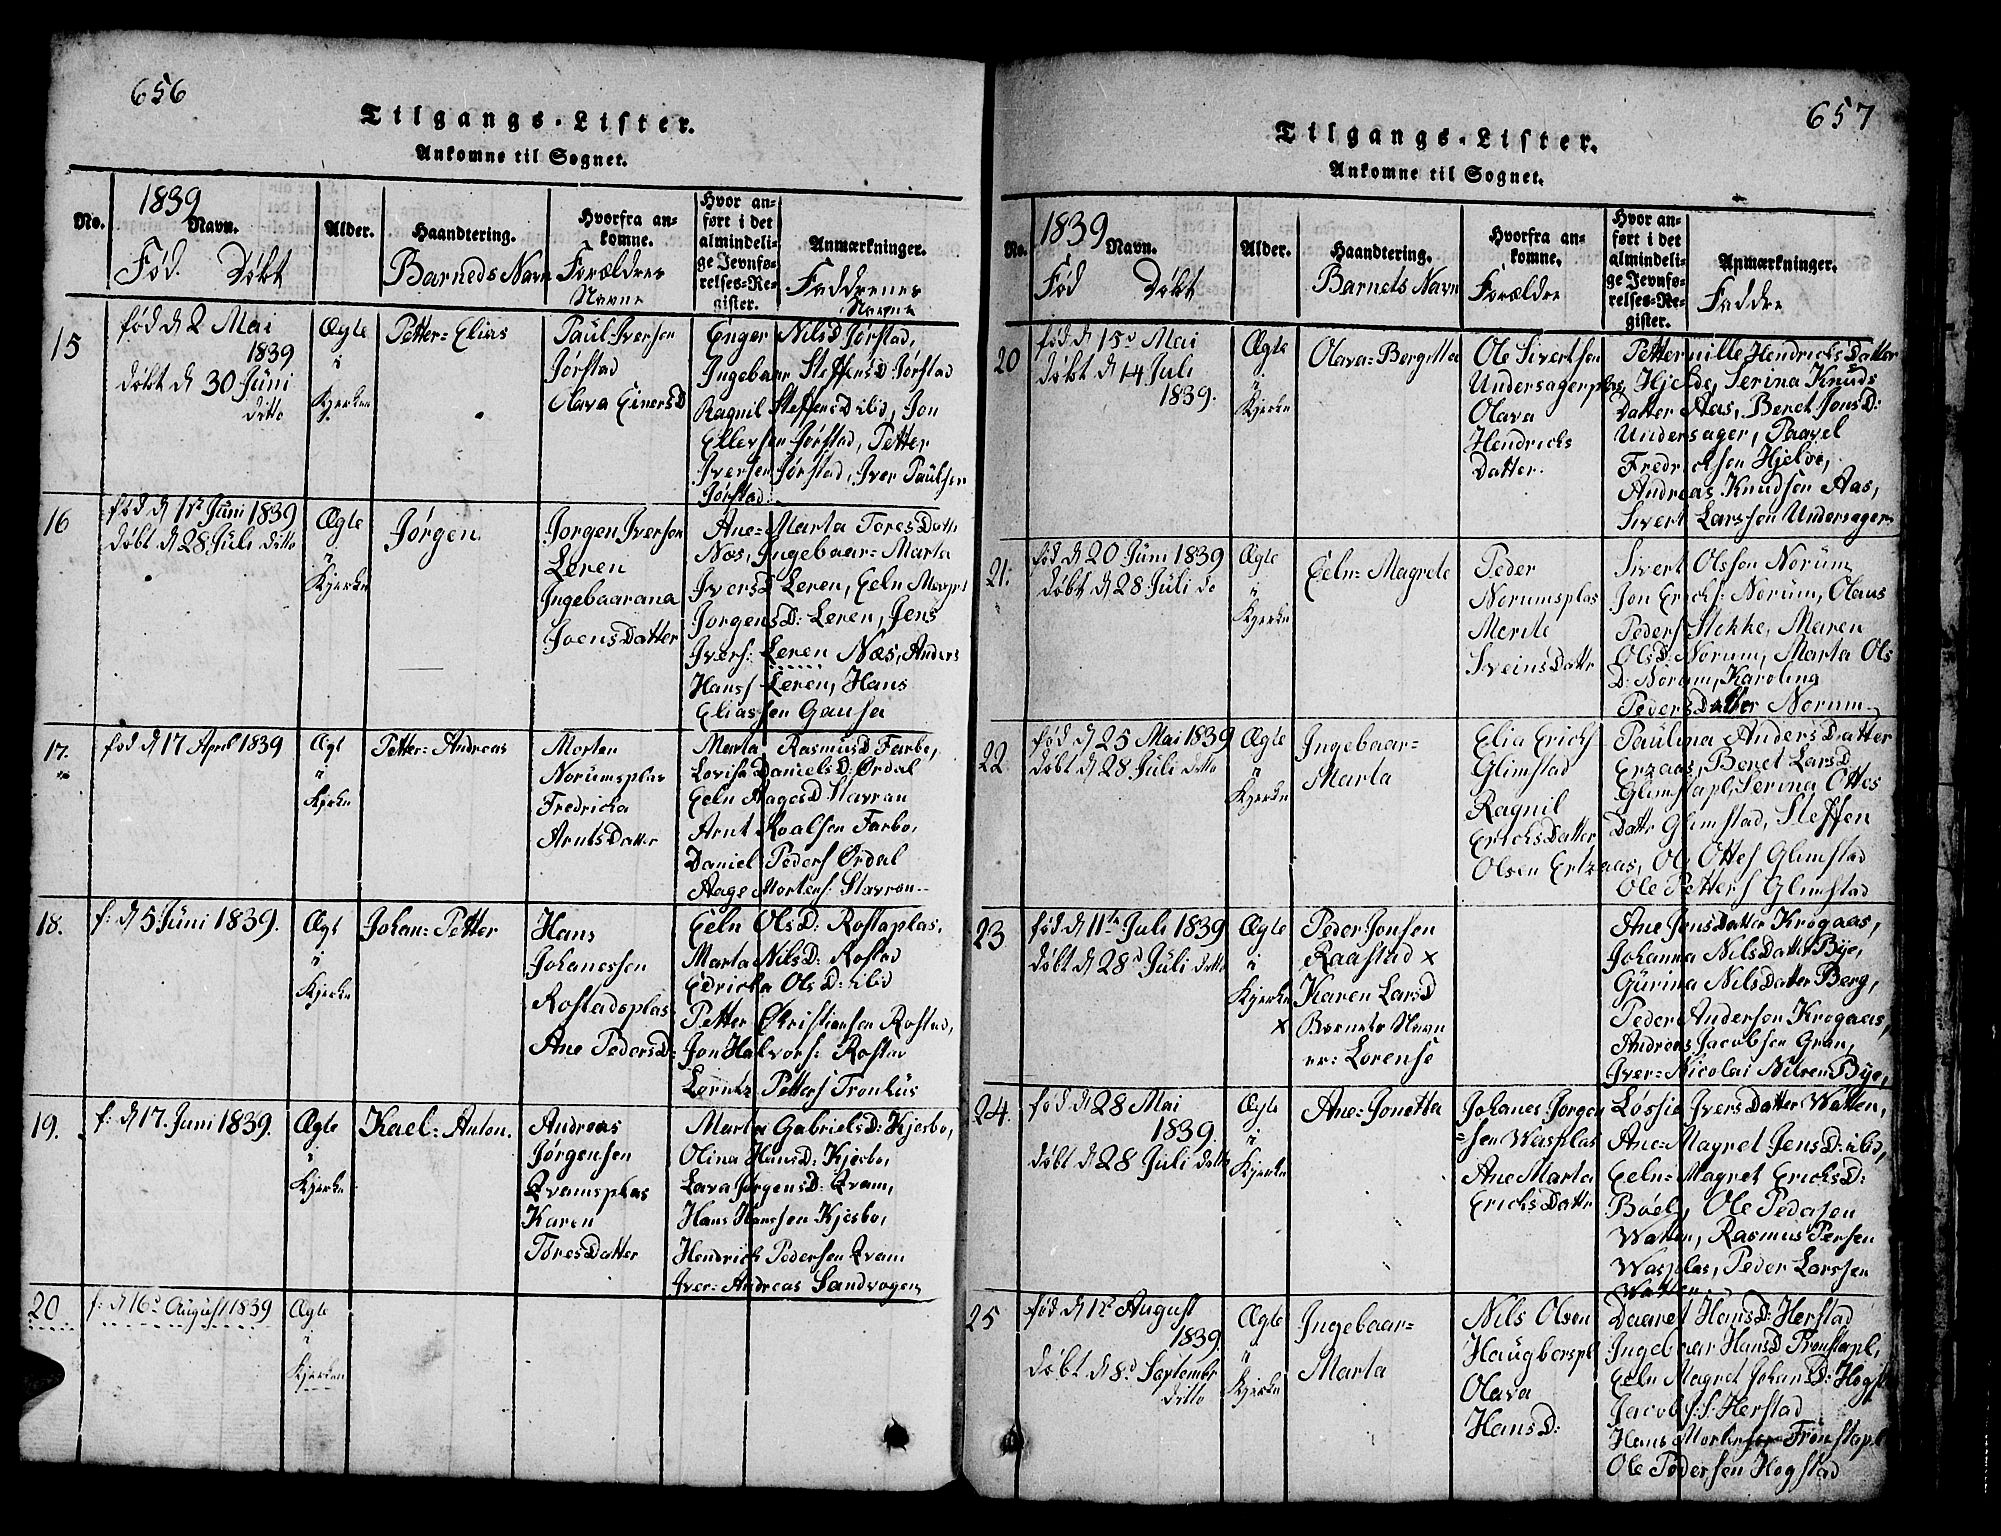 656
Tilgangs-Lister.
Ankomne til Sognet.
No.
1839
Navn.
Fød. Døbt
Alder.
Haandtering.
Barneds Navn
Hvorfra an-
komne.
Forældres
Navne
Hvor an-
ført i det
almindeli-
ge Jevnfø-
relses-Re-
gister.
Anmærkninger.
Faddrenes
Navne
15
fød d 2 Mai
1839
døbt d 30 Juni
ditto
Ægte
i
Kjerken
Petter= Elias
Paul Iversen
Jørstad
Olava Einers D
Enger Nils D Jørstad,
Ingebaar Steffens D Jørstad
Ragnil Steffens D ibid, Jon
Ellevsen Jørstad, Petter
Iversen Jørstad, Iver Paulsen
Jørstad.
16
fød d 1ste Juni 1839
døbt d 28 Juli ditto
Ægte
i
Kjerken
Jørgen
Jørgen Iversen
Leren
Ingebaarana
Joens Datter
Ane= Marta Tores Datter
Næs, Ingebaar= Marta
Ivers D Leren, Eeln Magret
Jorgens D: Leren, Jens
Ivers: Leren Næs, Anders
Hanss Leren, Hans
Eliassen Gausen
17.
fød d 17 April 1839
Ægt
i
Kjerken
Petter= Andreas
Morten
Norumsplas
Fredricka
Arnts Datter
Marta Rasmus D Farbo,
Lovisa Daniels D: Ørdal
Eeln Aages D Stavran
Arnt Roalsen Farbo,
Daniel Peders Ørdal
Aage Mortens: Stavron
18.
f: d 5 Juni 1839.
Ægt
i
Kjerken
Johan= Petter
Hans
Johanessen
Rostadsplas
Ane Peders D:
Eeln Ols D: Rostaplas,
Marta Nils D: Rostad
Edricka Ols D: ibid
Petter Christiansen Rostad,
Jon Halvors: Rostad
Lornts Petters Tronhus
19.
f: d 17. Juni 1839.
Ægte
i
Kjerken
Kael= Anton.
Andreas
Jørgensen
Qvamsplas
Karen
Tores Datter
Marta Gabriels D: Kjesbo,
Olina Hans D: Kjesbo,
Lava Jørgens D: Qvam,
Hans Hanssen Kjesbo,
Hendrich Pedersen Qvam
Iver= Andreas Sandvogen
20
f: d 16d August 1839
Ægte
i
Kjerken
657
Tilgangs-Lister.
Ankomne til Sognet.
No.
1839
Navn.
Fød Døbt
Alder.
Haandtering.
Barnets Navn
Hvorfra an-
komne.
Forældre
Hvor an-
ført i det
almindeli-
ge Jevnfø-
relses-Re-
gister.
Anmærkninger.
Faddre
20
fød d 15d Mai
døbt d 14 Juli
1839.
Ægte
i
Kjerken
Olava= Bergitta
Ole Sivertsen
Undersagerplas
Olava
Hendricks
Datter.
Petternille Hendricks Datter
Hjelde, Serina Knuds
Datter Aas, Beret Jons D:
Undersager, Paavel
Fredricksen Hjelde,
Andreas Knudsen Aas,
Sivert Larssen Undersager
21:
fød d 20 Juni 1839
døbt d 28 Juli do
Ægte
i
Kjerken
Eeln= Magrete
Peder
Norumsplas
Merite
Sveins Datter
Sivert Olssen Norum
Jon Erichs: Norum, Olaus
Peders Stekke, Maren
Ols D: Norum, Marta Ols
D: Norum, Karolina
Peders Datter Norum
22
fød d 25 Mai 1839
døbt d 28 Juli ditto
Ægte
i
Kjerken
Ingebaar=
Marta
Elia Erichs
Glimstad
Ragnil
Erichs Datter
Paulina Anders Datter
Erzaas, Beret Lars D:
Glimstapl, Serina Ottes
Datr Glimstad, Steffen
Olsen Ertzaas, Ole Ottes Glimstad
Ole Petters Glimstad
23
fød d 11te Juli 1839
døbt d 28d Juli ditto
Ægte
i
Kjerken
x
Peder Jonsen
Raastad x
Karen Lars D
Barnets Navn
er: Lorense
Ane Jens datter Krogaas,
Johanna Nils Datter Bye,
Gurina Nils Datter Berg,
Peder Andersen Krogaas,
Andreas Jacobsen Gran,
Iver= Nicolai Nilsen Bye,
24.
fød d 28 Mai
1839.
døbt d 28 Juli ditto
Ægte
i
Kjerken
Ane= Jonetta
Johanes Jorgen
=sen Wasplas
Ane Marta
Erichs Datter
Løssie Ivers Datter Watten,
Ane= Magret Jens D: ibid,
Eeln= Magret Erichs D:
Bøel, Ole Pedersen
Watten, Rasmus Persen
Wasplas, Peder Larssen
Watten
25
fød d 1ste August
1839.
døbt d 8d September
ditto
Ægte
i
Kjerken
Ingebaar=
Marta
Nils Olsen
Haugberspl
Olava
Hans D:
Daaret Hans D: Herstad
Ingebaar Hans D Tronstapl,
Eeln Magret Johans D: Hogst
Jacob: S: Herstad
Hans Mortensen Tronstapl
Ole Pedersen Hogstad